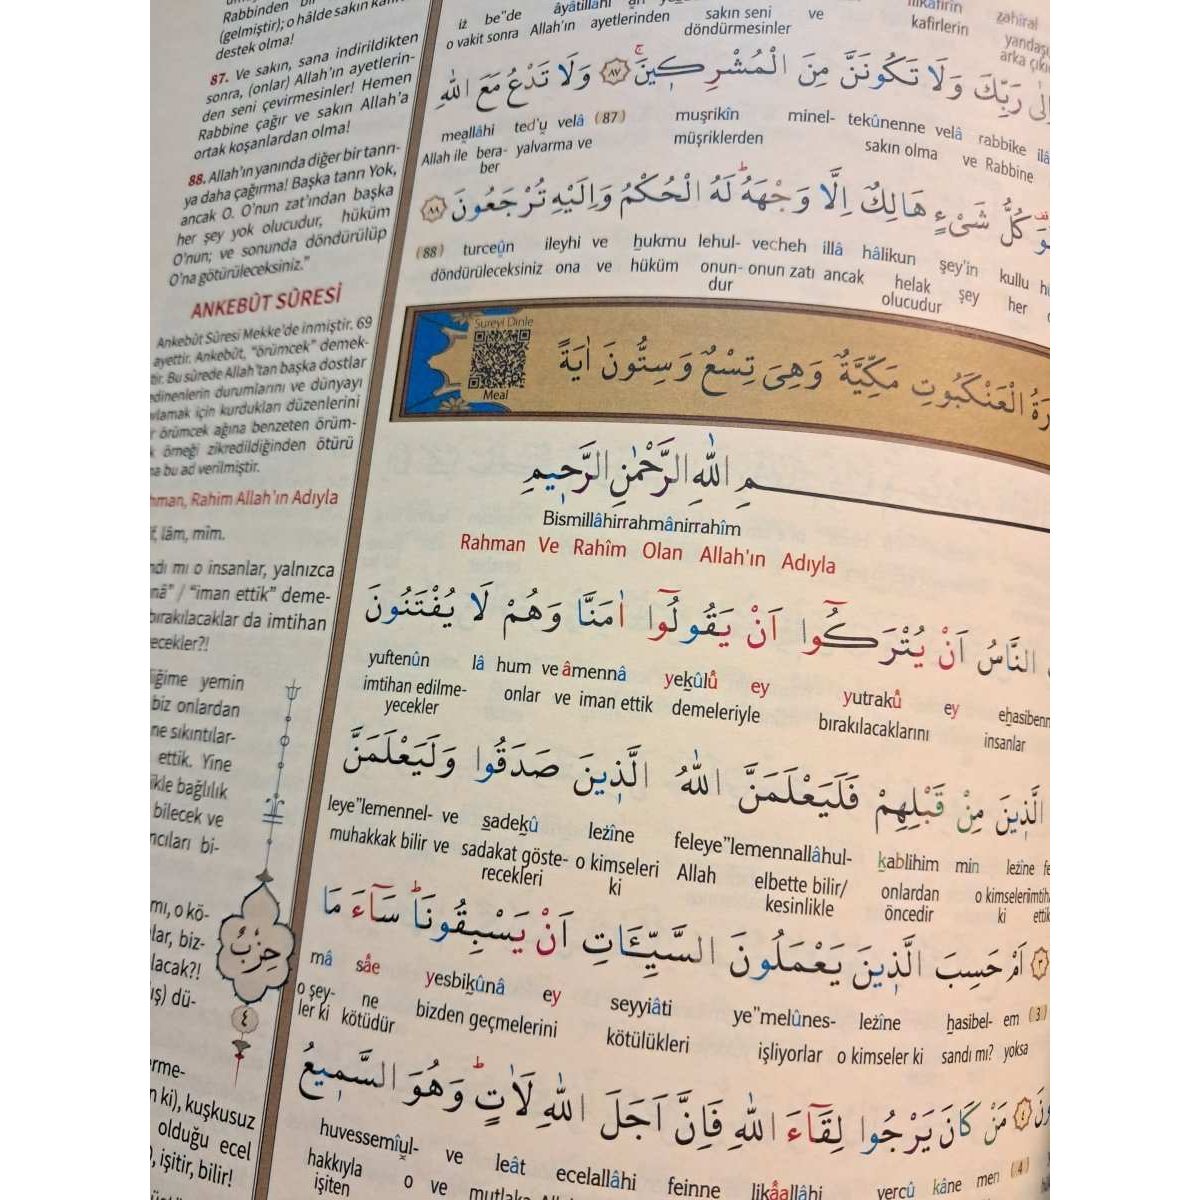 Rabbinden
(gelmiştir); o hâlde sakın
destek olma!
87. Ve sakın, sana indirildikten
sonra, (onlar) Allah'ın ayetlerin-
den seni çevirmesinler! Hemen
Rabbine çağır ve sakın Allah'a
ortak koşanlardan olma!
88. Allah'ın yanında diğer bir tanrı-
ya daha çağırma! Başka tanrı Yok,
ancak O. O'nun zat'ından başka
her şey yok olucudur, hüküm
O'nun; ve sonunda döndürülüp
O'na götürüleceksiniz."
ANKEBÛT SÛRESİ
Ankebût Sûresi Mekke'de inmiştir. 69
ayettir. Ankebût, "örümcek" demek-
tir. Bu sûrede Allah'tan başka dostlar
edinenlerin durumlarını ve dünyayı
için kurdukları düzenlerini
örümcek ağına benzeten örüm-
örneği zikredildiğinden ötürü
bu ad verilmiştir.
Rahim Allah'ın Adıyla
lâm, mîm.
mı o insanlar, yalnızca
/ "iman ettik" deme-
bırakılacaklar da imtihan
yemin
biz onlardan
ne sıkıntılar-
ettik. Yine
bağlılık
bilecek ve
bi-
mı, o kö-
biz-
dü-
ki), kuşkusuz
olduğu ecel
işitir, bilir!
حِزْبٌ
٤
iz be"de âyâtillâhi
o vakit sonra Allah'ın ayetlerinden sakın seni ve kafirlerin
döndürmesinler arka
رَبِّكَ وَلَا تَكُونَنَّ مِنَ الْمُشْرِكِينَۚ ﴿٨٧﴾ وَلَا تَدْعُ مَعَ اللّٰهِ
meallâhi ted'u velâ (87) muşrikîn minel- tekûnenne velâ rabbike ilâ
Allah ile bera- yalvarma ve müşriklerden sakın olma ve Rabbine
ber
كُلُّ شَيْءٍ هَالِكٌ اِلَّا وَجْهَهُۜ لَهُ الْحُكْمُ وَاِلَيْهِ تُرْجَعُونَ ﴿٨٨﴾
(88) turceûn ileyhi ve hukmu lehul- vecheh illâ hâlikun şey'in kullu
döndürüleceksiniz ona ve hüküm onun- onun zatı ancak helak şey her
dur olucudur
Sureyi Dinle
Meal
الْعَنْكَبُوتِ مَكِّيَّةٌ وَهِيَ تِسْعٌ وَسِتُّونَ اٰيَةً
اللّٰهِ الرَّحْمٰنِ الرَّحِيمِ
Bismillâhirrahmânirrahîm
Rahman Ve Rahîm Olan Allah'ın Adıyla
النَّاسُ اَنْ يُتْرَكُٓوا اَنْ يَقُولُٓوا اٰمَنَّا وَهُمْ لَا يُفْتَنُونَ
yuftenûn lâ hum ve âmennâ yekûlû ey yutrakû ey
imtihan edilme- onlar ve iman ettik demeleriyle bırakılacaklarını insanlar
yecekler
الَّذِينَ مِنْ قَبْلِهِمْ فَلَيَعْلَمَنَّ اللّٰهُ الَّذِينَ صَدَقُوا وَلَيَعْلَمَنَّ
leye"lemennel- ve sadekû lezîne feleye"lemennallâhul- kablihim min lezîne
muhakkak bilir ve sadakat göste- o kimseleri Allah elbette bilir/ onlardan o kimseleri
recekleri ki kesinlikle öncedir ki
اَمْ حَسِبَ الَّذِينَ يَعْمَلُونَ السَّيِّـَٔاتِ اَنْ يَسْبِقُونَاۜ سَٓاءَ مَا
mâ sâe yesbikûnâ ey seyyiâti ye"melûnes- lezîne hasibel- em (3)
o şey- ne bizden geçmelerini kötülükleri işliyorlar o kimseler ki sandı mı? yoksa
ler ki kötüdür
مَنْ كَانَ يَرْجُوا لِقَٓاءَ اللّٰهِ فَاِنَّ اَجَلَ اللّٰهِ لَاٰتٍۜ وَهُوَ السَّمِيعُ
huvessemîul- ve leât ecelallâhi feinne likâallâhi yercû kâne men (4)
hakkıyla o ve mutlaka
işiten